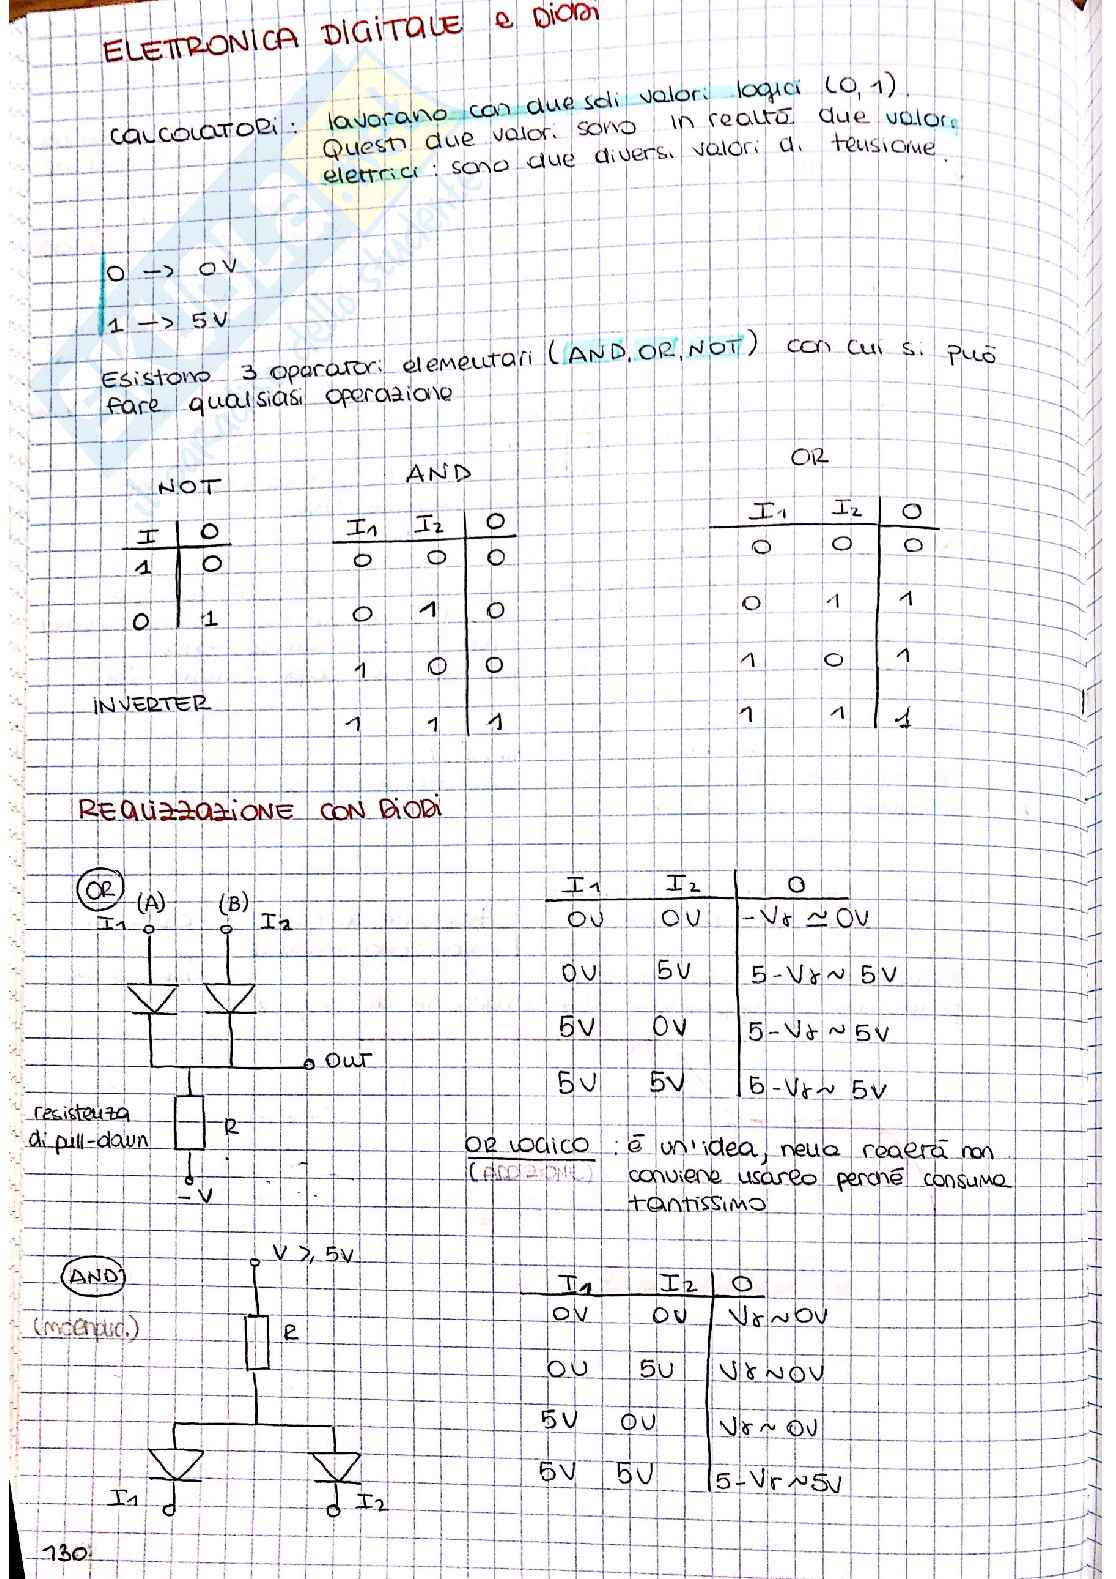 ELETTRONICA DIGITALE e DIODI
CALCOLATORI: lavorano con due soli valori logici (0,1).
Questi due valori sono in realtà due valori
elettrici: sono due diversi valori di tensione.
0 -> 0V
1 -> 5V
Esistono 3 operatori elementari (AND, OR, NOT) con cui si può
fare qualsiasi operazione
NOT
I O
1 0
0 1
INVERTER
AND
I1 I2 O
0 0 0
0 1 0
1 0 0
1 1 1
OR
I1 I2 O
0 0 0
0 1 1
1 0 1
1 1 1
REALIZZAZIONE CON DIODI
OR (A) (B)
I1 I2
OUT
resistenza
di pull-down
R
-V
I1 I2 O
0V 0V -Vγ ≃ 0V
0V 5V 5-Vγ ~ 5V
5V 0V 5-Vγ ~ 5V
5V 5V 5-Vγ ~ 5V
OR LOGICO: è un'idea, nella realtà non
(ADDIZIONE) conviene usarlo perché consuma
tantissimo
AND
V ≥ 5V
R
I1 I2
I1 I2 O
0V 0V Vγ ~ 0V
0V 5V Vγ ~ 0V
5V 0V Vγ ~ 0V
5V 5V 5-Vγ ~ 5V
130